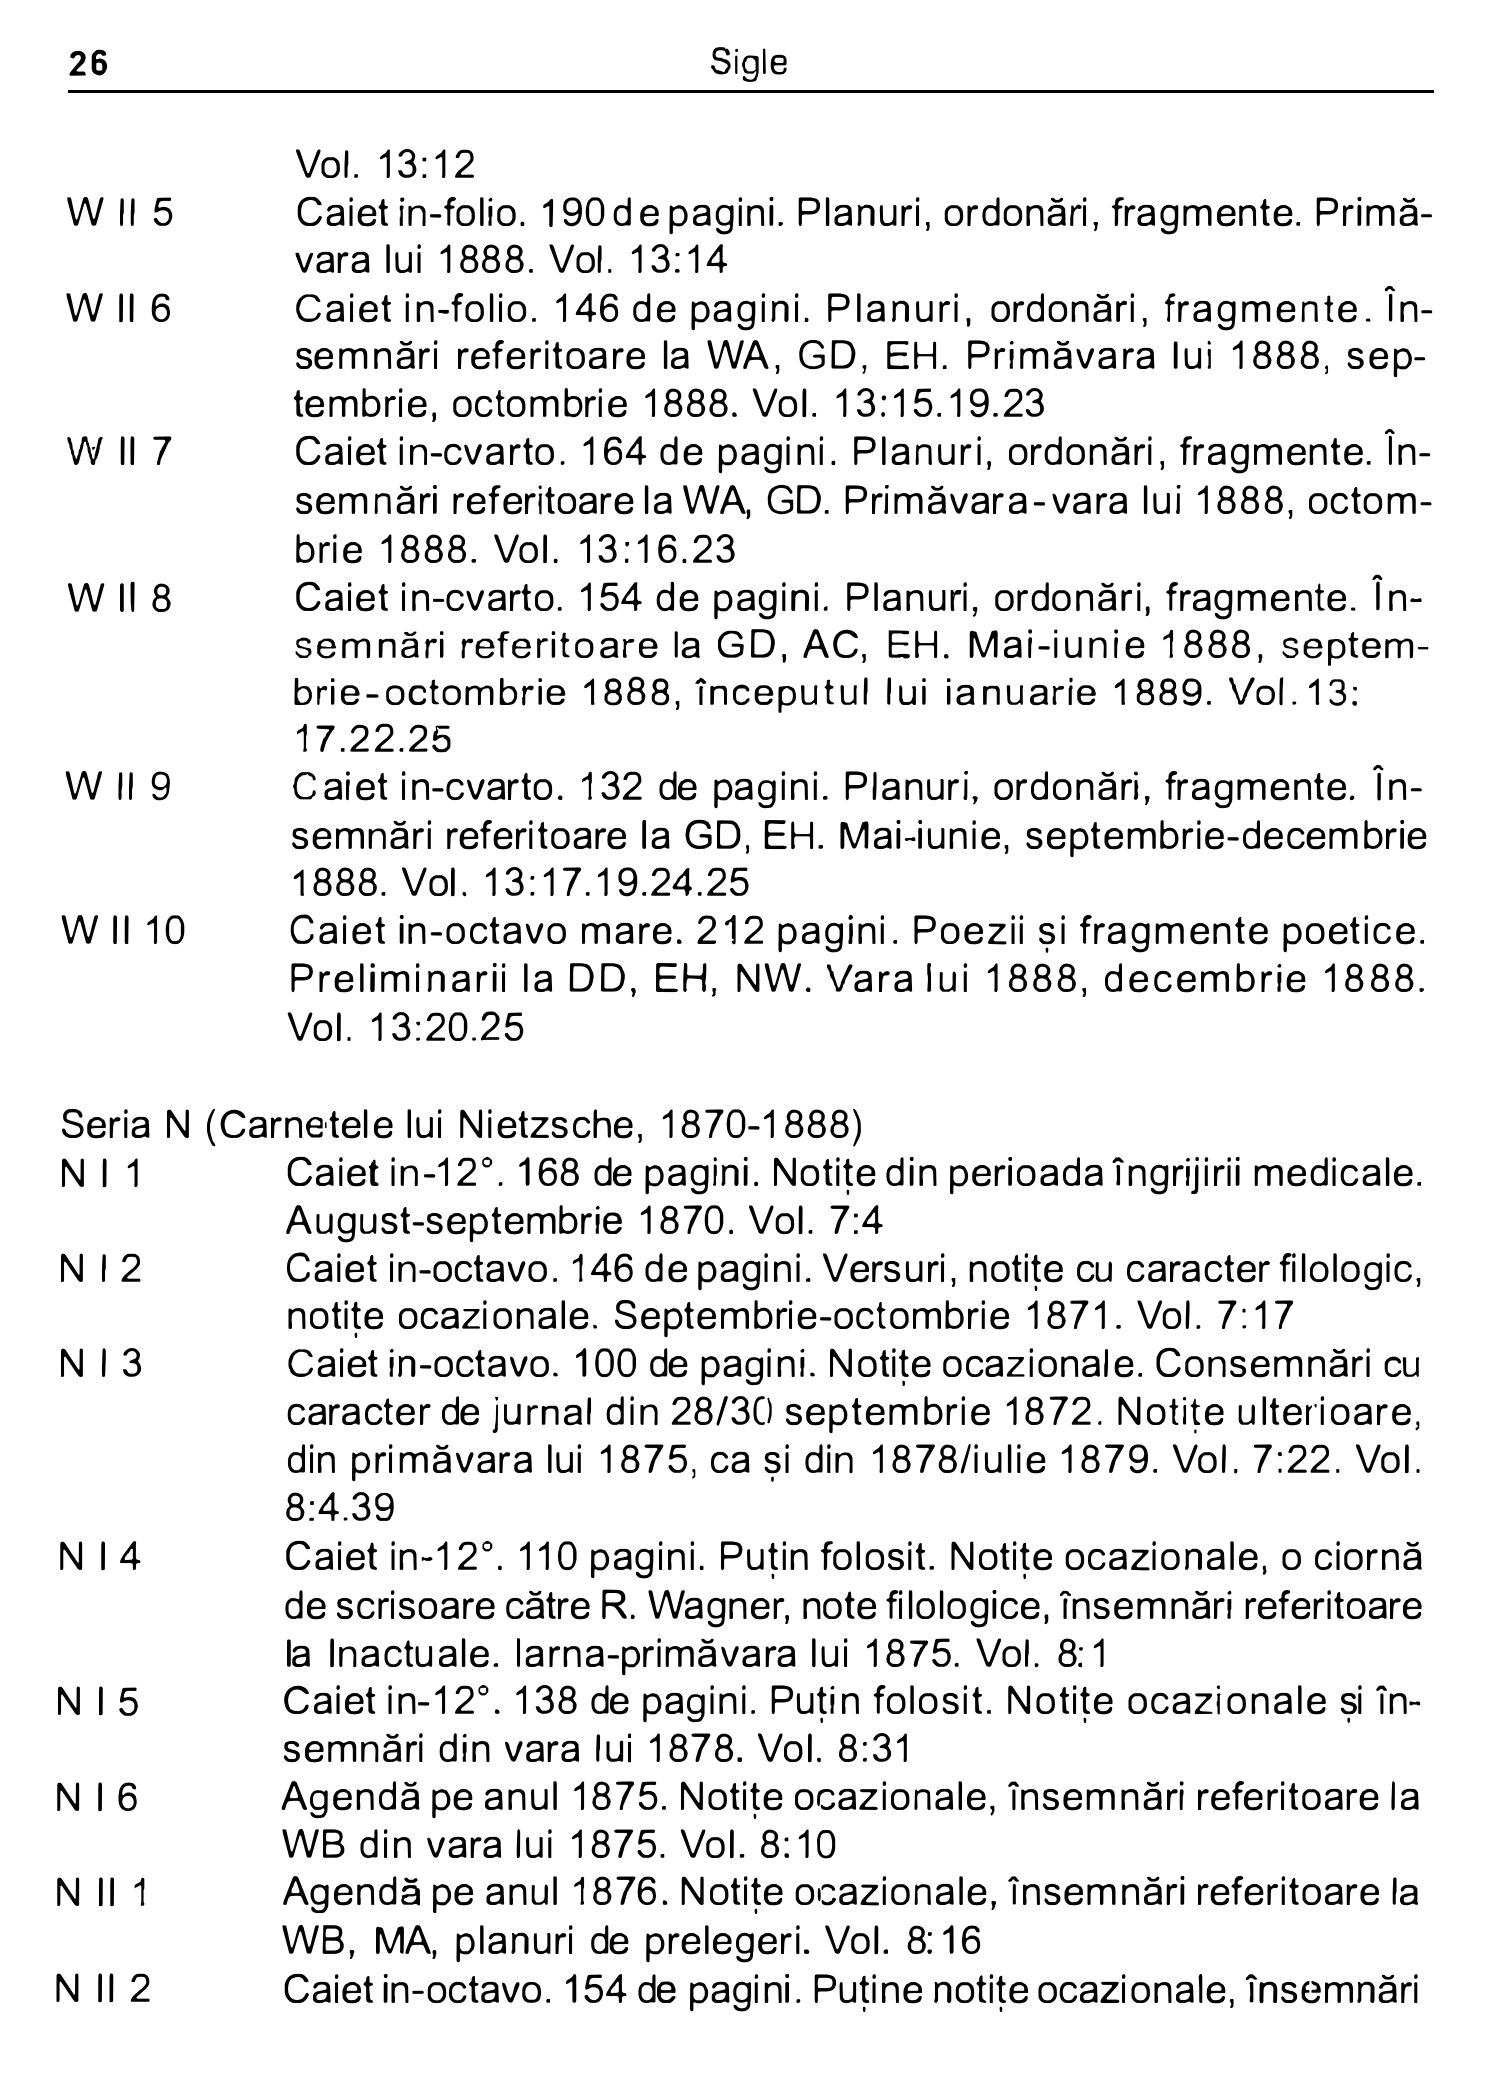 26 Sigle
Vol. 13:12
W II 5 Caiet in-folio. 190 de pagini. Planuri, ordonări, fragmente. Primă-
vara lui 1888. Vol. 13:14
W II 6 Caiet in-folio. 146 de pagini. Planuri, ordonări, fragmente. În-
semnări referitoare la WA, GD, EH. Primăvara lui 1888, sep-
tembrie, octombrie 1888. Vol. 13:15.19.23
W II 7 Caiet in-cvarto. 164 de pagini. Planuri, ordonări, fragmente. În-
semnări referitoare la WA, GD. Primăvara-vara lui 1888, octom-
brie 1888. Vol. 13:16.23
W II 8 Caiet in-cvarto. 154 de pagini. Planuri, ordonări, fragmente. În-
semnări referitoare la GD, AC, EH. Mai-iunie 1888, septem-
brie-octombrie 1888, începutul lui ianuarie 1889. Vol. 13:
17.22.25
W II 9 Caiet in-cvarto. 132 de pagini. Planuri, ordonări, fragmente. În-
semnări referitoare la GD, EH. Mai-iunie, septembrie-decembrie
1888. Vol. 13:17.19.24.25
W II 10 Caiet in-octavo mare. 212 pagini. Poezii și fragmente poetice.
Preliminarii la DD, EH, NW. Vara lui 1888, decembrie 1888.
Vol. 13:20.25
Seria N (Carnetele lui Nietzsche, 1870-1888)
N I 1 Caiet in-12°. 168 de pagini. Notițe din perioada îngrijirii medicale.
August-septembrie 1870. Vol. 7:4
N I 2 Caiet in-octavo. 146 de pagini. Versuri, notițe cu caracter filologic,
notițe ocazionale. Septembrie-octombrie 1871. Vol. 7:17
N I 3 Caiet in-octavo. 100 de pagini. Notițe ocazionale. Consemnări cu
caracter de jurnal din 28/30 septembrie 1872. Notițe ulterioare,
din primăvara lui 1875, ca și din 1878/iulie 1879. Vol. 7:22. Vol.
8:4.39
N I 4 Caiet in-12°. 110 pagini. Puțin folosit. Notițe ocazionale, o ciornă
de scrisoare către R. Wagner, note filologice, însemnări referitoare
la Inactuale. Iarna-primăvara lui 1875. Vol. 8:1
N I 5 Caiet in-12°. 138 de pagini. Puțin folosit. Notițe ocazionale și în-
semnări din vara lui 1878. Vol. 8:31
N I 6 Agendă pe anul 1875. Notițe ocazionale, însemnări referitoare la
WB din vara lui 1875. Vol. 8:10
N II 1 Agendă pe anul 1876. Notițe ocazionale, însemnări referitoare la
WB, MA, planuri de prelegeri. Vol. 8:16
N II 2 Caiet in-octavo. 154 de pagini. Puține notițe ocazionale, însemnări